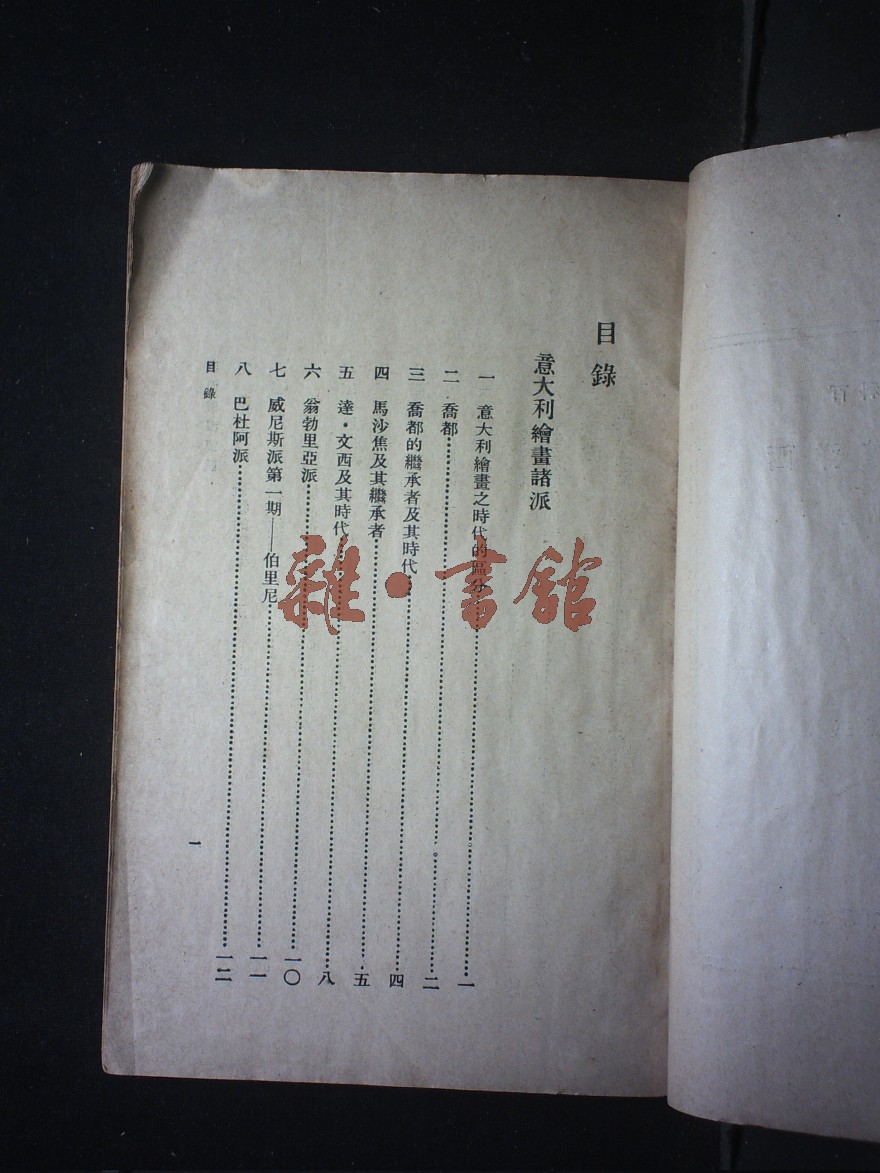 目錄
意大利繪畫諸派
一 意大利繪畫之時代的區分……一
二 喬都……二
三 喬都的繼承者及其時代……四
四 馬沙焦及其繼承者……五
五 達·文西及其時代……八
六 翁勃里亞派……一〇
七 威尼斯派第一期——伯里尼……一一
八 巴杜阿派……一二
目錄
一
雜·書館